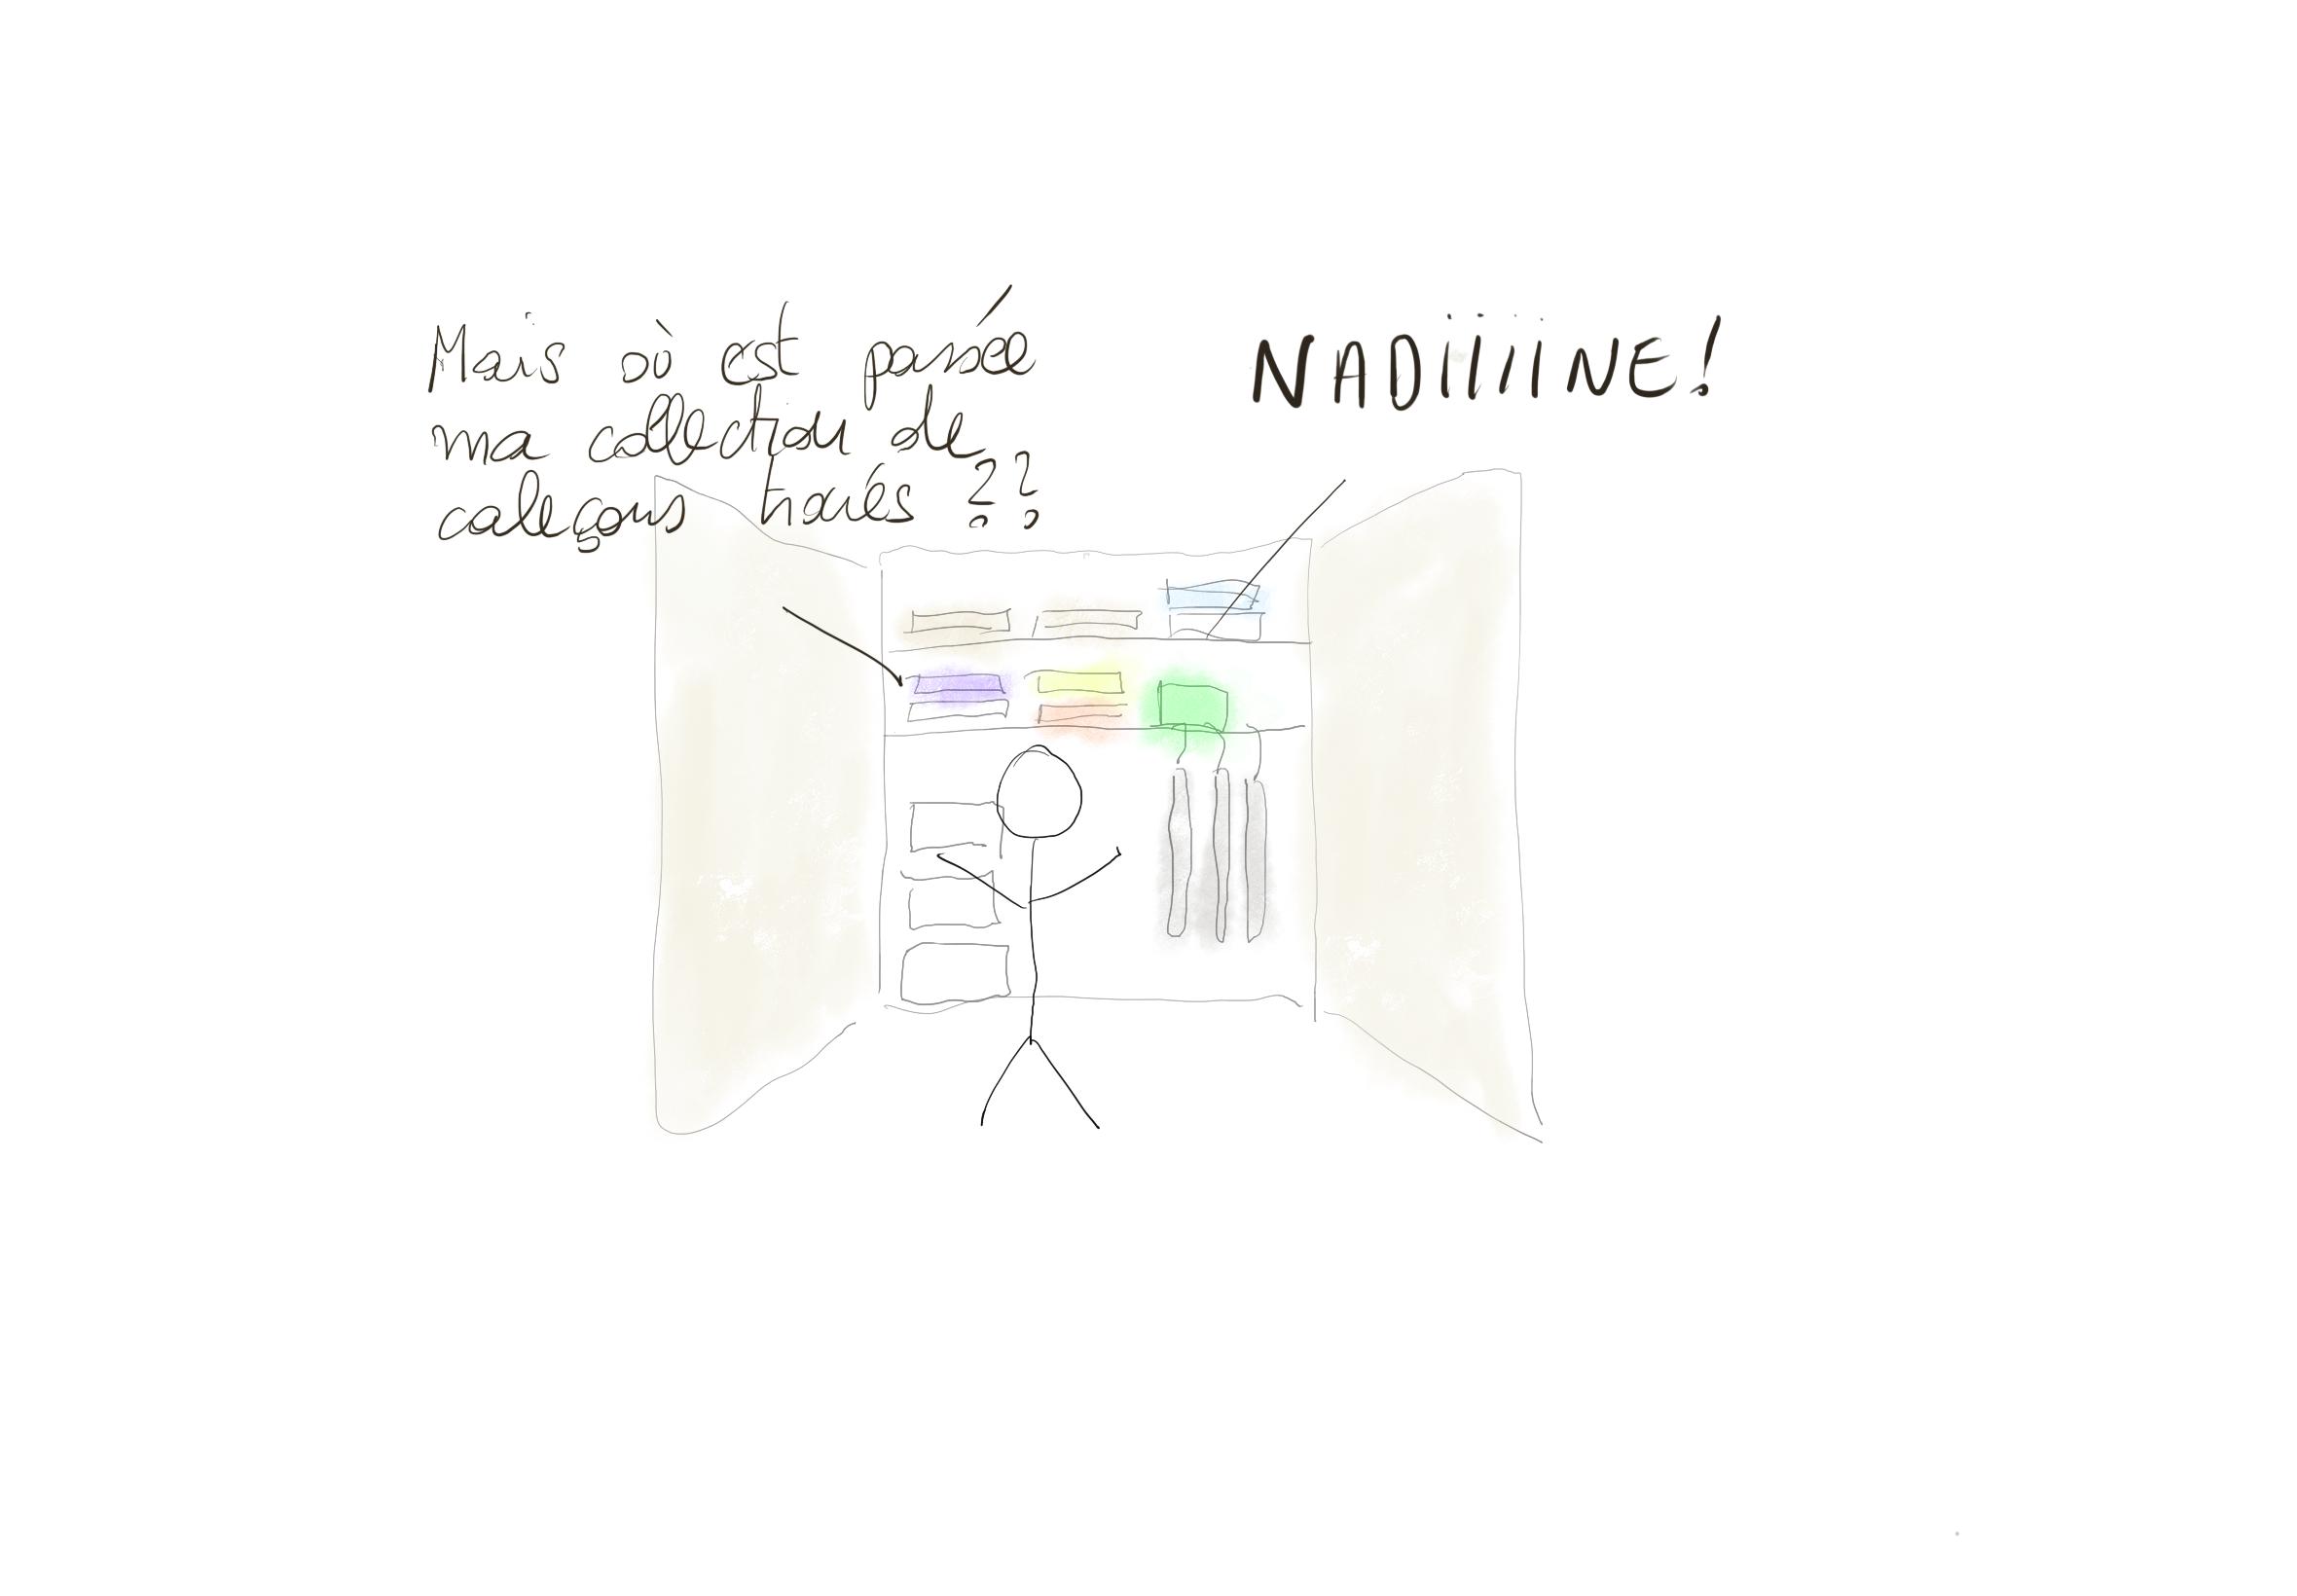 Mais où est passée
ma collection de
caleçons troués ??
NADIIIINE!